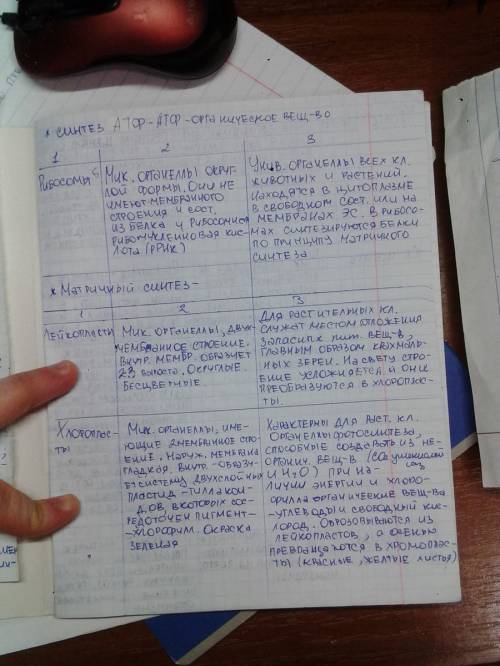 * СИНТЕЗ АТФ-АТФ-ОРГАНИЧЕСКОЕ ВЕЩ-ВО
1
2
3
РИБОСОМЫ
МИК. ОРГАНЕЛЛЫ ОКРУГ-
ЛОЙ ФОРМЫ. ОНИ НЕ
ИМЕЮТ МЕМБРАННОГО
СТРОЕНИЯ И СОСТ.
ИЗ БЕЛКА И РИБОСОМНАЯ
РИБОНУКЛЕИНОВАЯ КИС-
ЛОТА (РРНК)
УНИВ. ОРГАНЕЛЛЫ ВСЕХ КЛ.
ЖИВОТНЫХ И РАСТЕНИЙ.
НАХОДЯТСЯ В ЦИТОПЛАЗМЕ
В СВОБОДНОМ СОСТ. ИЛИ НА
МЕМБРАНАХ ЭС. В РИБОСО-
МАХ СИНТЕЗИРУЮТСЯ БЕЛКИ
ПО ПРИНЦИПУ МАТРИЧНОГО
СИНТЕЗА
* МАТРИЧНЫЙ СИНТЕЗ-
1
2
3
ЛЕЙКОПЛАСТЫ
МИК. ОРГАНЕЛЛЫ, ДВУХ-
МЕМБРАННОЕ СТРОЕНИЕ.
ВНУТР. МЕМБР. ОБРАЗУЕТ
2-3 ВЫРОСТА. ОКРУГЛЫЕ.
БЕСЦВЕТНЫЕ.
ДЛЯ РАСТИТЕЛЬНЫХ КЛ.
СЛУЖАТ МЕСТОМ ОТЛОЖЕНИЯ
ЗАПАСНЫХ ПИТ. ВЕЩ-В,
ГЛАВНЫМ ОБРАЗОМ КРАХМАЛЬ-
НЫХ ЗЕРЕН. НА СВЕТУ СТРО-
ЕНИЕ УСЛОЖНЯЕТСЯ И ОНИ
ПРЕОБРАЗУЮТСЯ В ХЛОРОПЛАС-
ТЫ.
ХЛОРОПЛАС-
ТЫ
МИК. ОРГАНЕЛЛЫ, ИМЕ-
ЮЩИЕ 2МЕМБРАННОЕ СТРО-
ЕНИЕ. НАРУЖ. МЕМБРАНА
ГЛАДКАЯ. ВНУТР.-ОБРАЗУ-
ЕТ СИСТЕМУ ДВУХСЛОЙНЫХ
ПЛАСТИД-ТИЛЛАКОИ-
ДОВ, В КОТОРЫХ СОС-
РЕДОТОЧЕН ПИГМЕНТ-
-ХЛОРОФИЛ. ОКРАСКА
ЗЕЛЕНАЯ
ХАРАКТЕРНЫ ДЛЯ РАСТ. КЛ.
ОРГАНЕЛЛЫ ФОТОСИНТЕЗА,
СПОСОБНЫЕ СОЗДАВАТЬ ИЗ НЕ-
ОРГАНИЧ. ВЕЩ-В (CO₂ УГЛЕКИСЛЫЙ ГАЗ
И H₂O) ПРИ НА-
ЛИЧИИ ЭНЕРГИИ И ХЛОРО-
ФИЛЛА ОРГАНИЧЕСКИЕ ВЕЩ-ВА
-УГЛЕВОДЫ И СВОБОДНЫЙ КИС-
ЛОРОД. ОБРОЗОВЫВАЮТСЯ ИЗ
ЛЕЙКОПЛАСТОВ, А ОСЕНЬЮ
ПРЕВРАЩАЮТСЯ В ХРОМОПЛАС-
ТЫ (КРАСНЫЕ, ЖЕЛТЫЕ ЛИСТЬЯ)